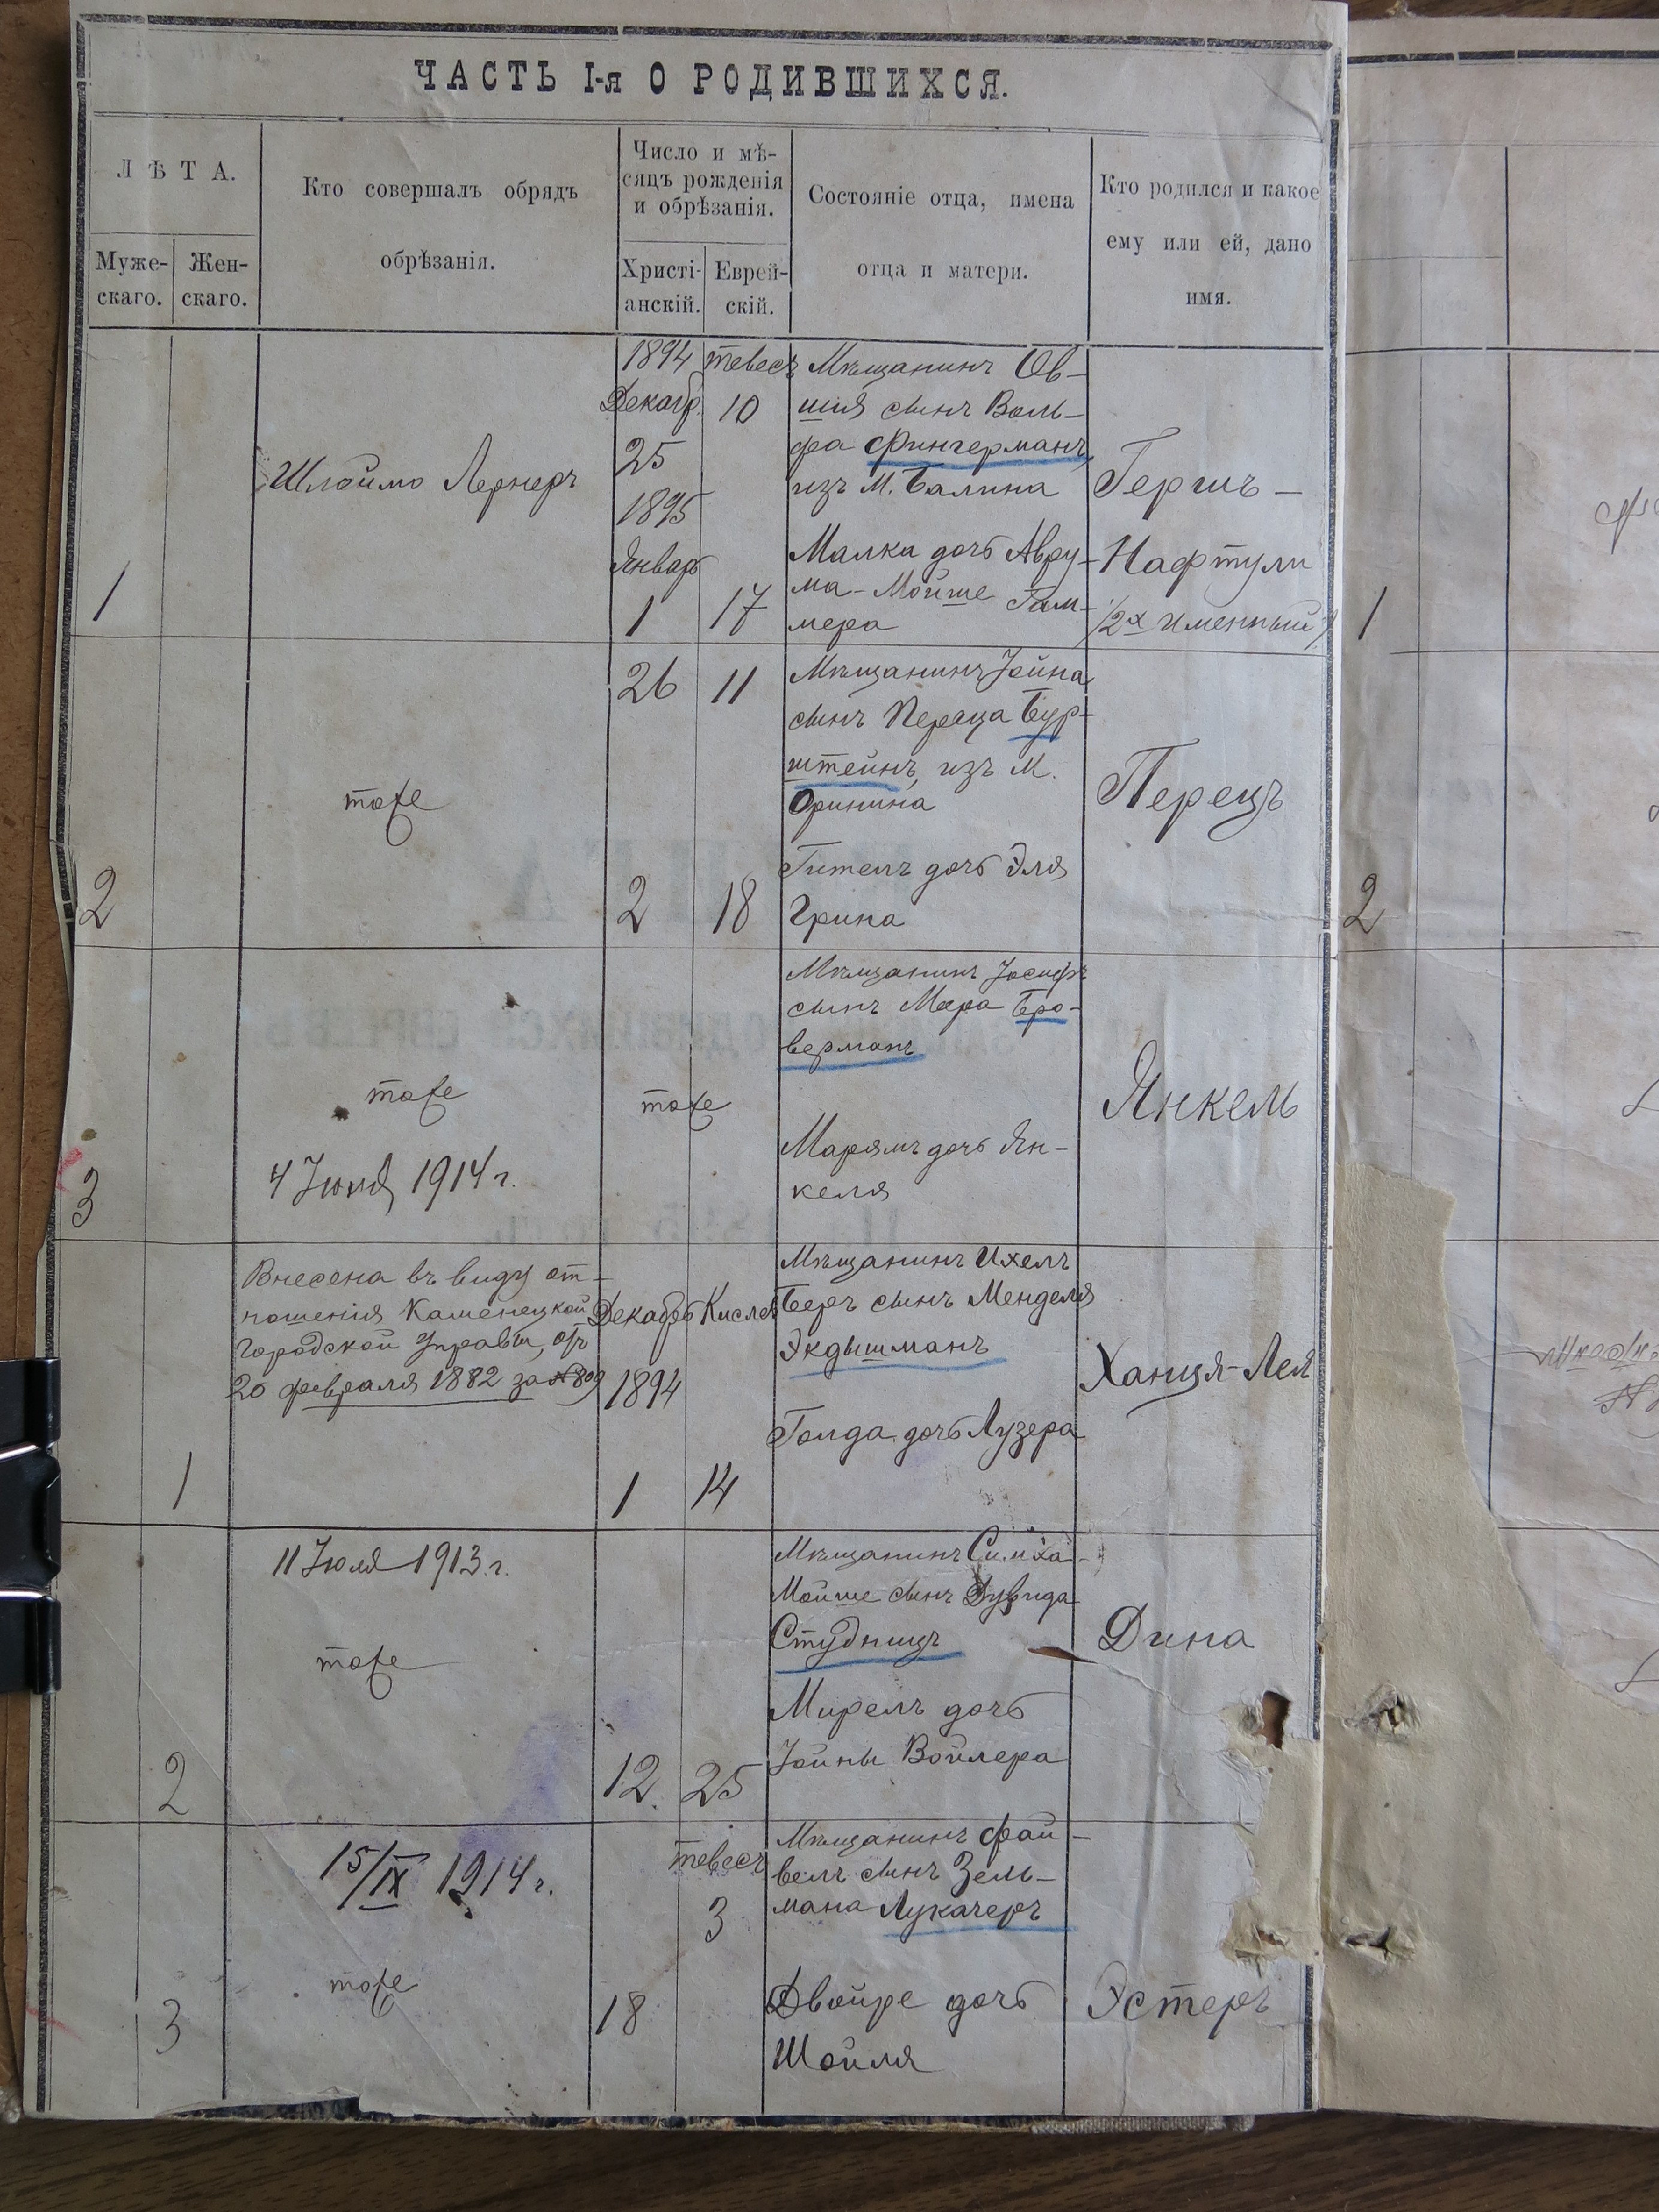 ЧАСТЬ I-я О РОДИВШИХСЯ.
ЛѢТА.
Муже-
скаго.
Жен-
скаго.
Кто совершалъ обрядъ
обрѣзанія.
Число и мѣ-
сяцъ рожденія
и обрѣзанія.
Христі-
анскій.
Еврей-
скій.
Состояніе отца, имена
отца и матери.
Кто родился и какое
ему или ей, дано
имя.
1
Шлоймо Лернеръ
1894
Декабр.
25
1895
Январь
1
тевесъ
10
17
Мѣщанинъ Ов-
шия сынъ Воль-
фа Фингерманъ
изъ м. Балина
Малка дочь Авру-
ма-Мойше Гам-
мера
Гершъ-
Нафтули
/2х именный/
1
2
тоже
26
2
11
18
Мѣщанинъ Іойна
сынъ Переца Бур-
штейнъ, изъ м.
Оринина
Гителъ дочь Эля
Грина
Перецъ
2
3
тоже
4 Іюня 1914 г.
тоже
Мѣщанинъ Іосифъ
сынъ Меера Бро-
верманъ
Маріямъ дочь Ян-
келя
Янкель
1
Внесена въ виду от-
ношенія Каменецкой
Городской Управы, отъ
20 февраля 1882 за №809
Декабрь
1894
1
Кислев
14
Мѣщанинъ Ихелъ
Беръ сынъ Менделя
Экдышманъ
Голда дочь Лузера
Ханця-Лея
2
11 Іюля 1913 г.
тоже
12
25
Мѣщанинъ Симха-
Мойше сынъ Дувида
Студницъ
Мирелъ дочь
Іойны Войлера
Дина
3
15/IX 1914 г.
тоже
18
тевесъ
3
Мѣщанинъ Фай-
велъ сынъ Зель-
мана Лукачеръ
Двойре дочь
Шойля
Эстеръ